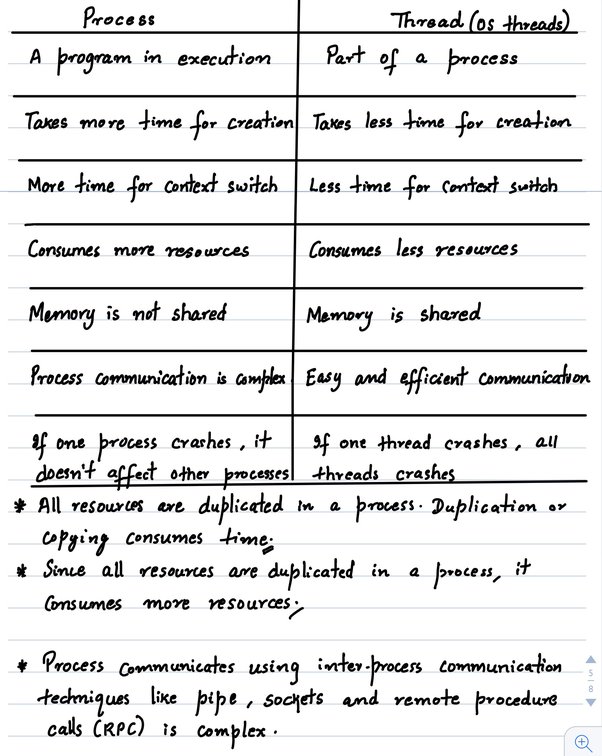 Process Thread (OS threads)
A program in execution Part of a process
Takes more time for creation Takes less time for creation
More time for context switch Less time for context switch
Consumes more resources Consumes less resources
Memory is not shared Memory is shared
Process communication is complex Easy and efficient communication
If one process crashes, it If one thread crashes, all
doesn't affect other processes threads crashes
* All resources are duplicated in a process. Duplication or
copying consumes time.
* Since all resources are duplicated in a process, it
consumes more resources.
* Process communicates using inter-process communication
techniques like pipe, sockets and remote procedure
calls (RPC) is complex.
5
8